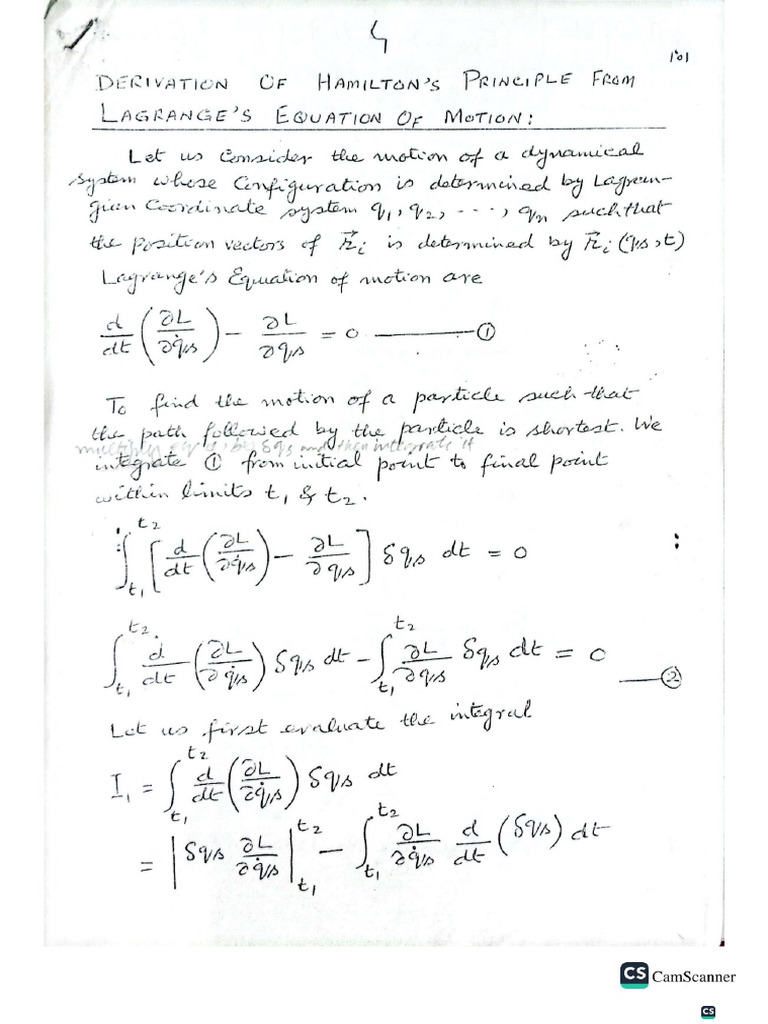 4
101
DERIVATION OF HAMILTON'S PRINCIPLE FROM
LAGRANGE'S EQUATION OF MOTION:
Let us Consider the motion of a dynamical
system whose Configuration is determined by Lagran-
gian Coordinate system q₁, q₂, ..., qₙ such that
the position vectors of r⃗ᵢ is determined by r⃗ᵢ(qs, t)
Lagrange's Equation of motion are
d/dt (∂L/∂q̇s) − ∂L/∂qs = 0 ——— ①
To find the motion of a particle such that
the path followed by the particle is shortest. We
multiply eq ① by δqs and then integrate it
integrate ① from initial point to final point
within limits t₁ & t₂.
∴ ∫_{t₁}^{t₂} [d/dt (∂L/∂q̇s) − ∂L/∂qs] δqs dt = 0
∫_{t₁}^{t₂} d/dt (∂L/∂q̇s) δqs dt − ∫_{t₁}^{t₂} ∂L/∂qs δqs dt = 0 —②
Let us first evaluate the integral
I₁ = ∫_{t₁}^{t₂} d/dt (∂L/∂q̇s) δqs dt
= |δqs ∂L/∂q̇s|_{t₁}^{t₂} − ∫_{t₁}^{t₂} ∂L/∂q̇s d/dt (δqs) dt
CS CamScanner
CS